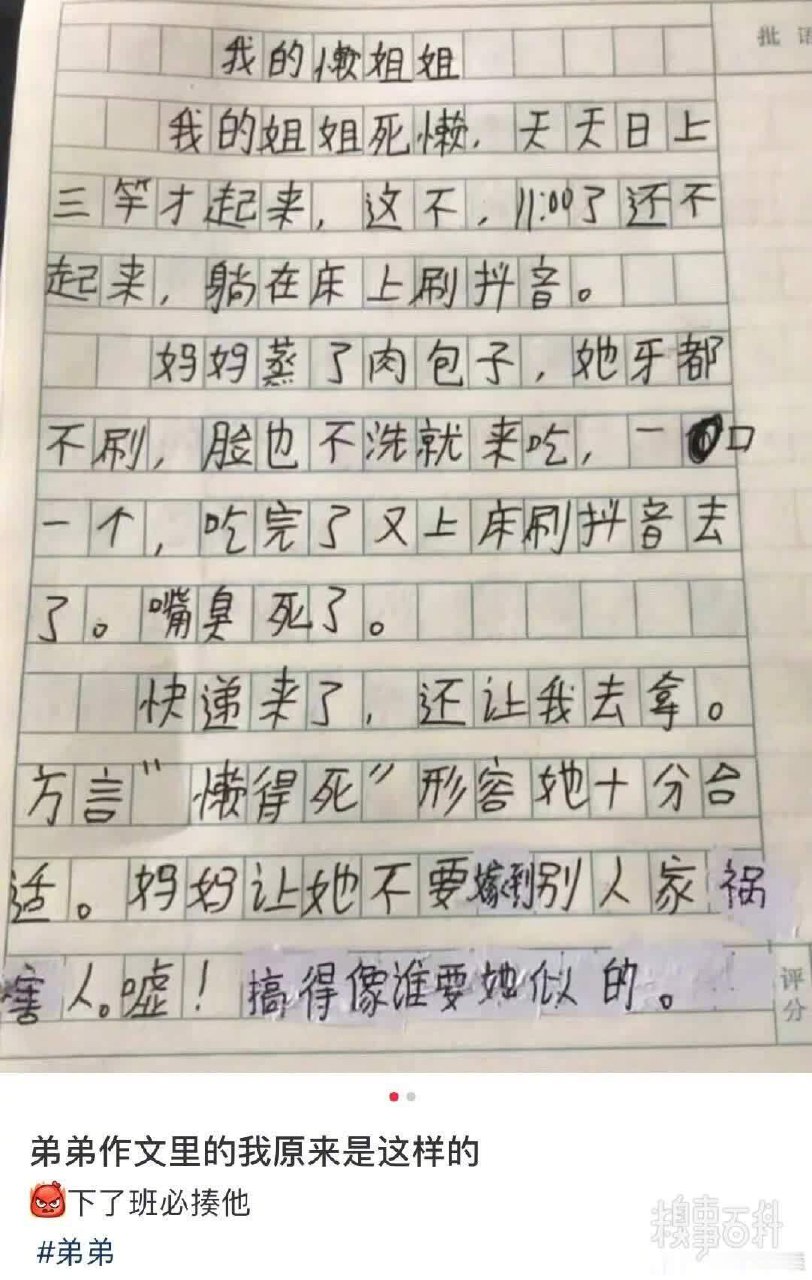 批语
我的懒姐姐
我的姐姐死懒，天天日上
三竿才起来，这不，11:00了还不
起来，躺在床上刷抖音。
妈妈蒸了肉包子，她牙都
不刷，脸也不洗就来吃，一口
一个，吃完了又上床刷抖音去
了。嘴臭死了。
快递来了，还让我去拿。
方言“懒得死”形容她十分合
适。妈妈让她不要嫁到别人家祸
害人。嘘！搞得像谁要她似的。
评分
弟弟作文里的我原来是这样的
👹下了班必揍他
#弟弟
糗事百科